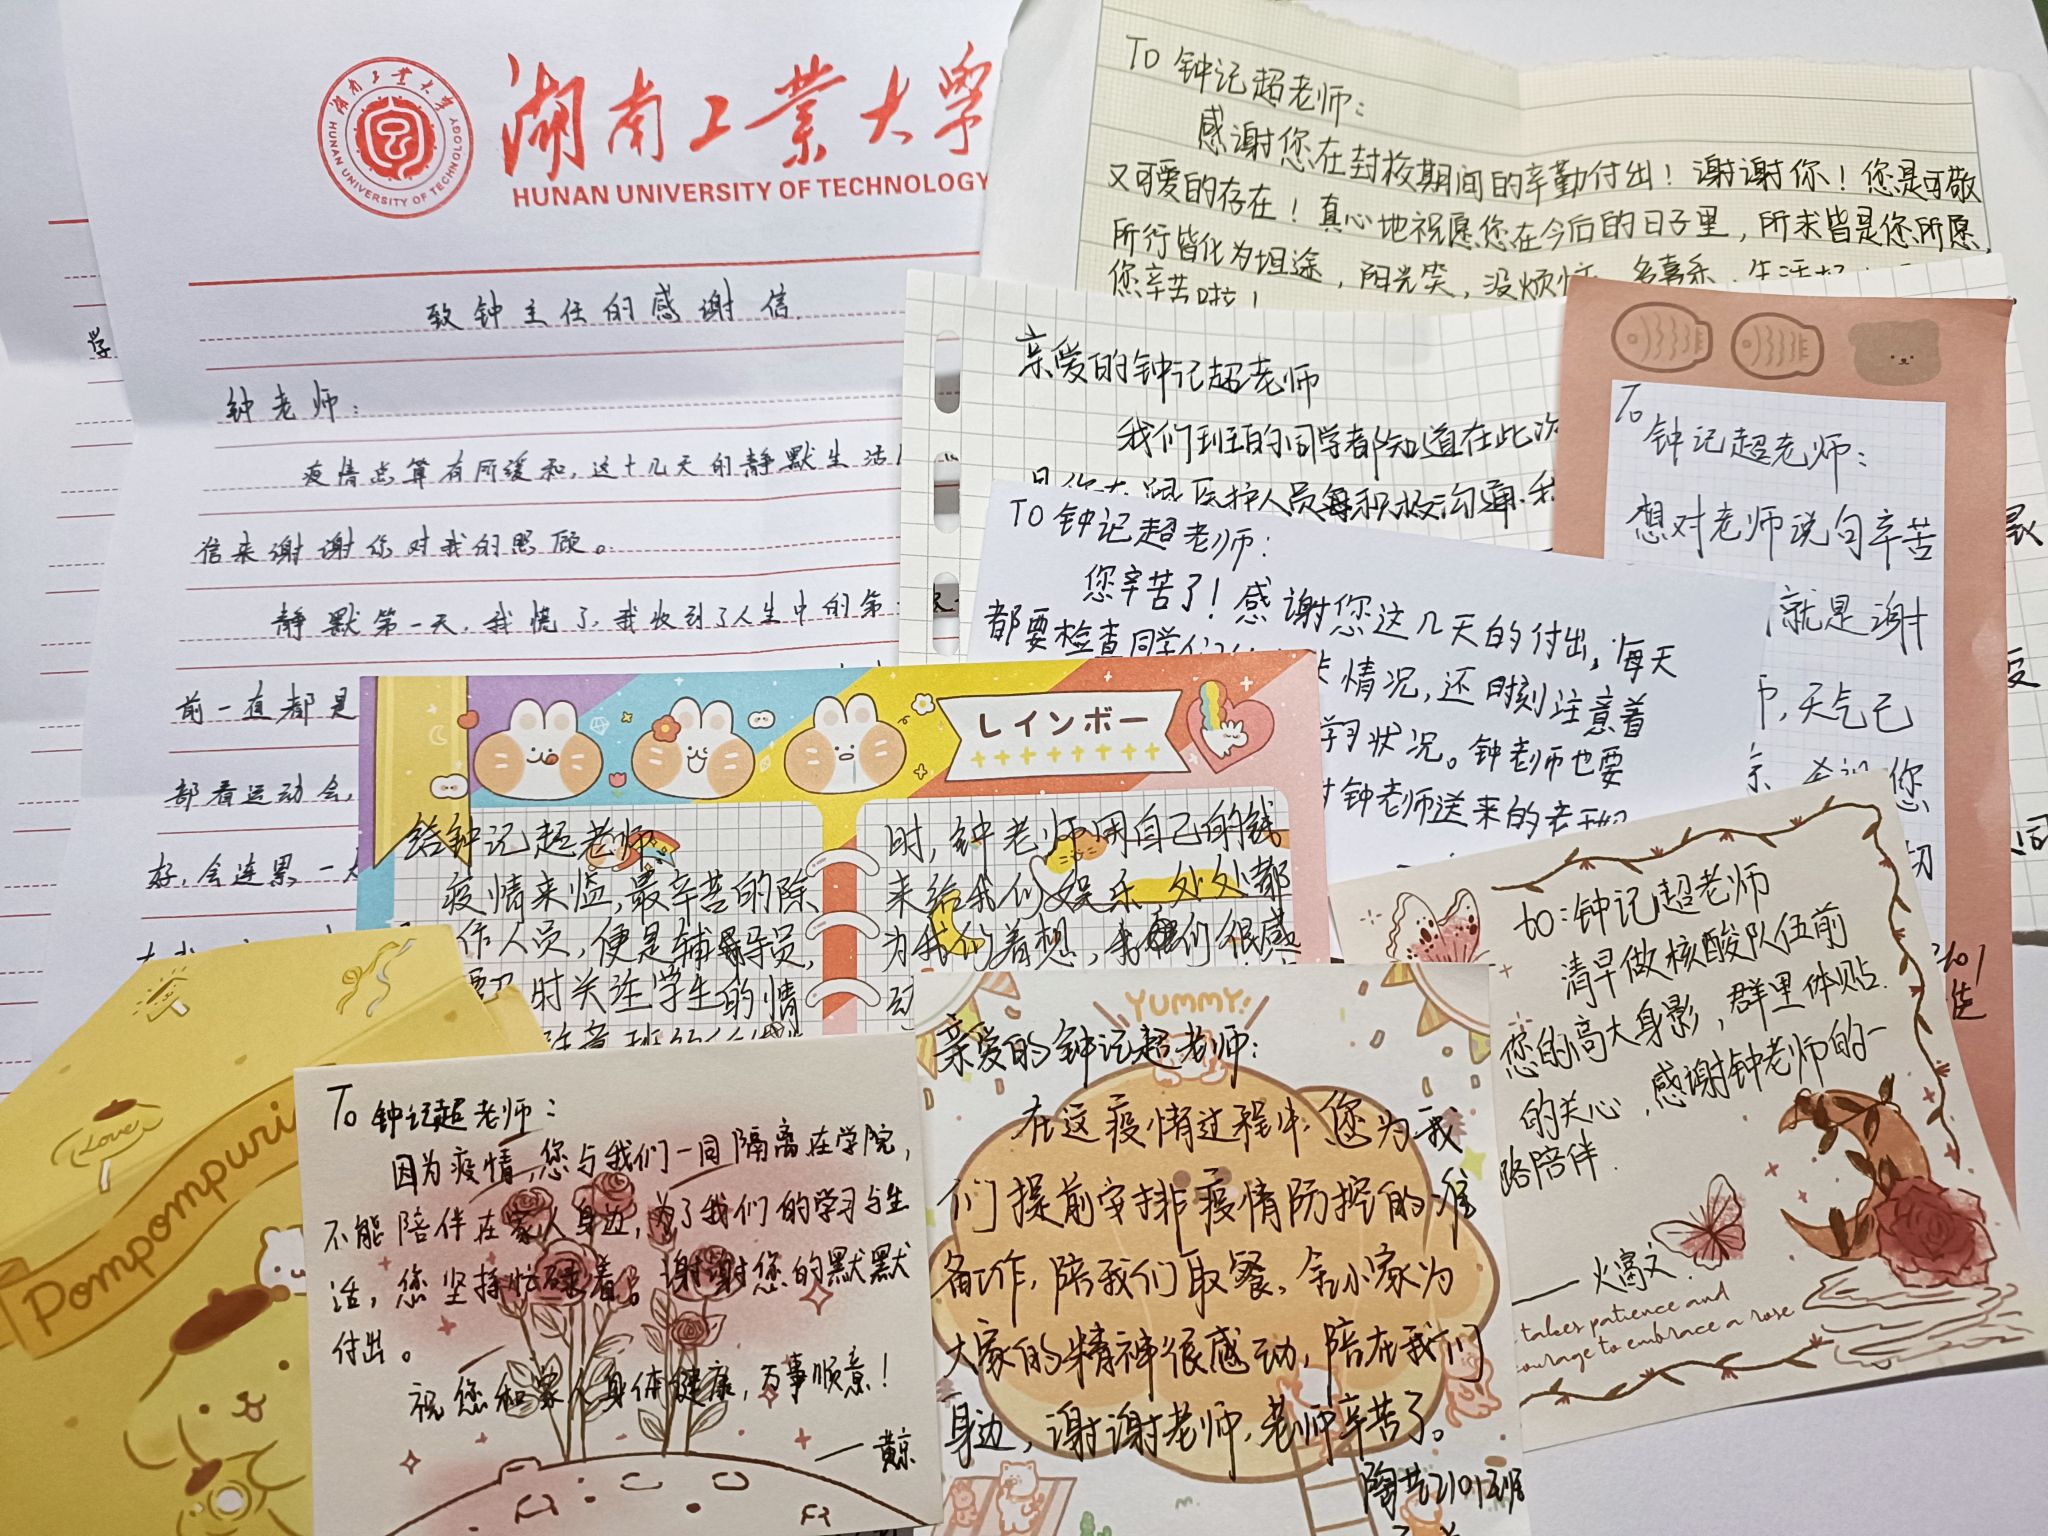 湖南工业大学
HUNAN UNIVERSITY OF TECHNOLOGY
湖南工业大学
HUNAN UNIVERSITY OF TECHNOLOGY
致钟主任的感谢信.
钟老师:
疫情总算有所缓和,这十几天的静默生活
信来谢谢您对我的照顾。
静默第一天,我慌了,我收到了人生中的第
前一直都是
部看运动会,
好,会连累一
学
To 钟记超老师:
感谢您在封校期间的辛勤付出!谢谢你!您是可敬
又可爱的存在!真心地祝愿您在今后的日子里,所求皆是您所愿,
所行皆化为坦途,阳光笑,没烦恼,多喜乐,生活
您辛苦啦!
亲爱的钟记超老师
我们班的同学都知道在此次
医护人员每积极沟通,我
To 钟记超老师:
您辛苦了!感谢您这几天的付出,每天
都要检查同学们
情况,还时刻注意着
学习状况。钟老师也要
钟老师送来的
To
钟记超老师:
想对老师说句辛苦
就是谢
师,天气已
您
切
レインボー
给钟记超老师
疫情来临,最辛苦的除
作人员,便是辅导员,
要 时关注学生的情
时,钟老师用自己的钱
来给我们娱乐,处处都
为我们着想,我们很感
动
to:钟记超老师
清早做核酸队伍前
您的高大身影,群里体贴
的关心,感谢钟老师的一
路陪伴.
——火富文.
takes patience and
courage to embrace a rose
Pompompuri
Love
To 钟记超老师:
因为疫情,您与我们一同隔离在学院,
不能陪伴在家人身边,为了我们的学习与生
活,您坚持忙碌着。谢谢您的默默
付出。
祝您和家人身体健康,万事顺意!
——黄琼
YUMMY!
亲爱的钟记超老师:
在这疫情过程中,您为我
们提前安排疫情防控的准
备工作,陪我们取餐,舍小家为
大家的精神很感动,陪在我们
身边,谢谢老师,老师辛苦了。
陶艺2101班